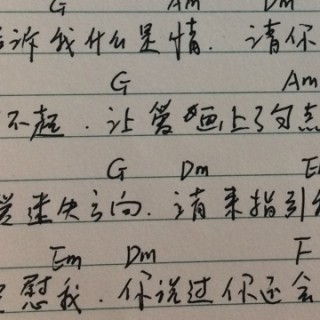 G Am Dm
诉我什么是情.请你
G Am
不起.让爱画上了句点
G Dm E
迷失方向.请来指引
Em Dm F
慰我.你说过你还会